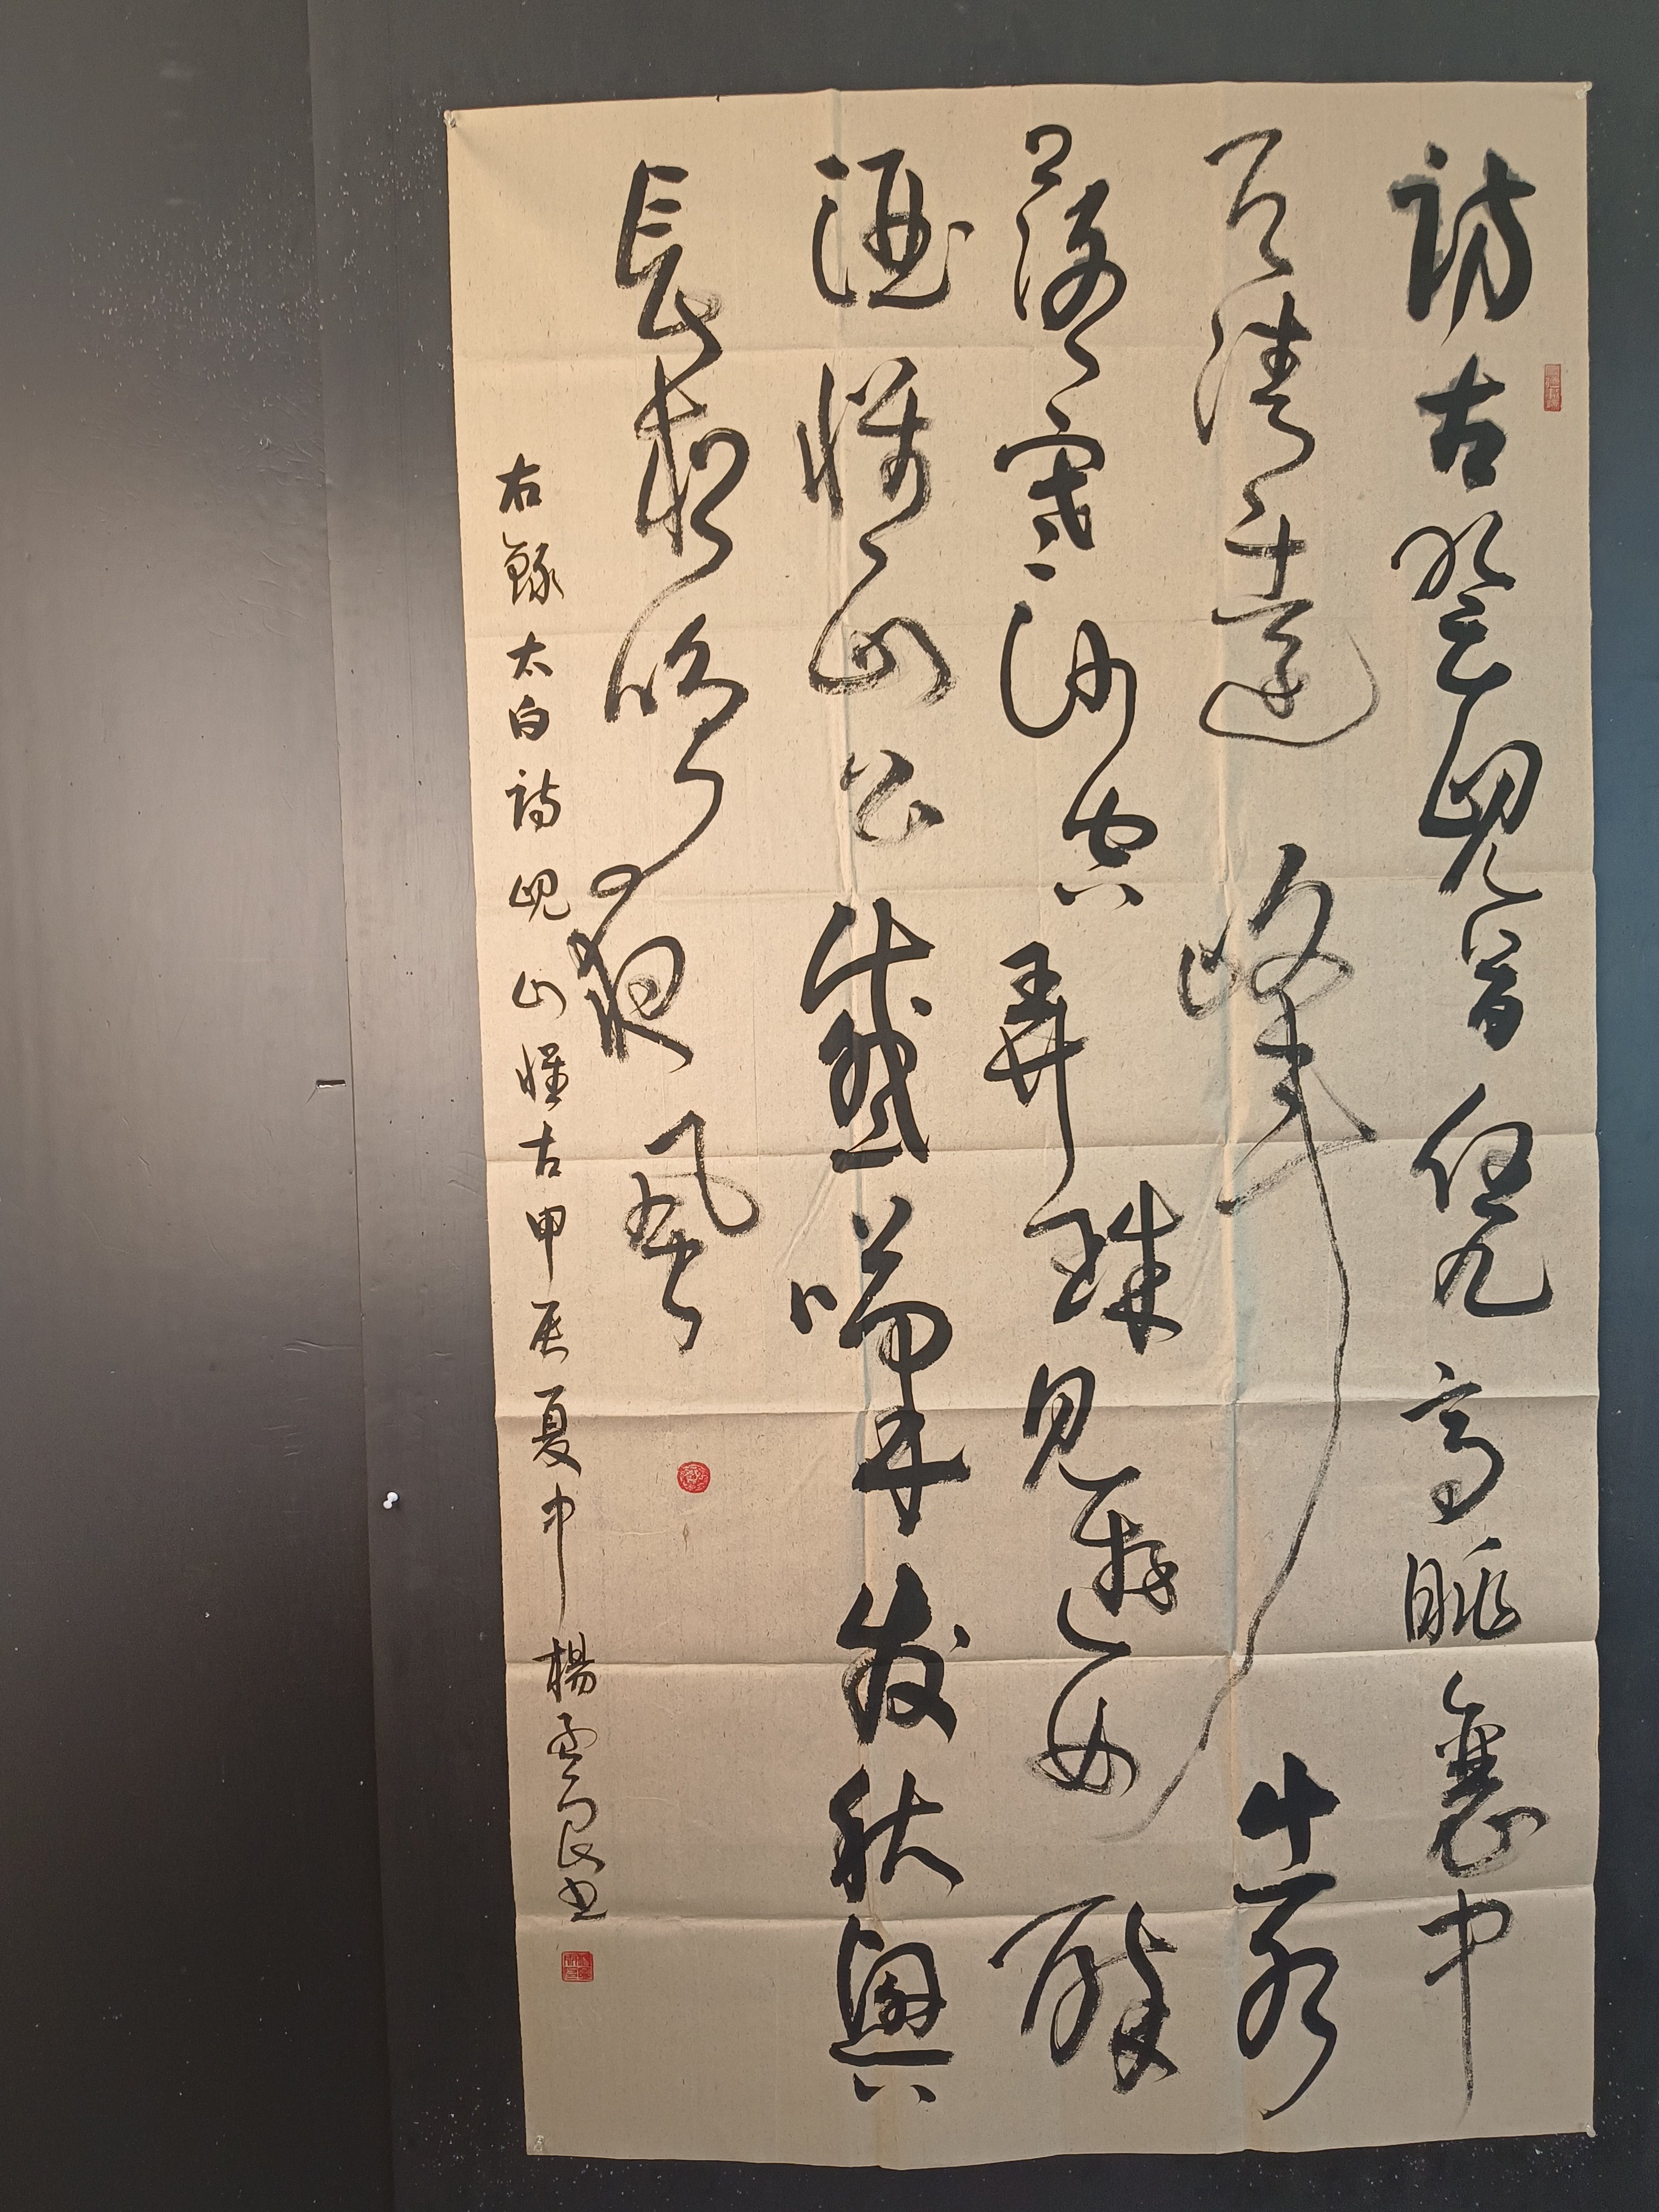 訪古登峴首凭高眺襄中
天清遠峰出水
落寒沙空弄珠見遊女醉
酒懷山公感嘆发秋興
長松鳴夜風
右錄太白詩峴山懷古甲辰夏中楊良书